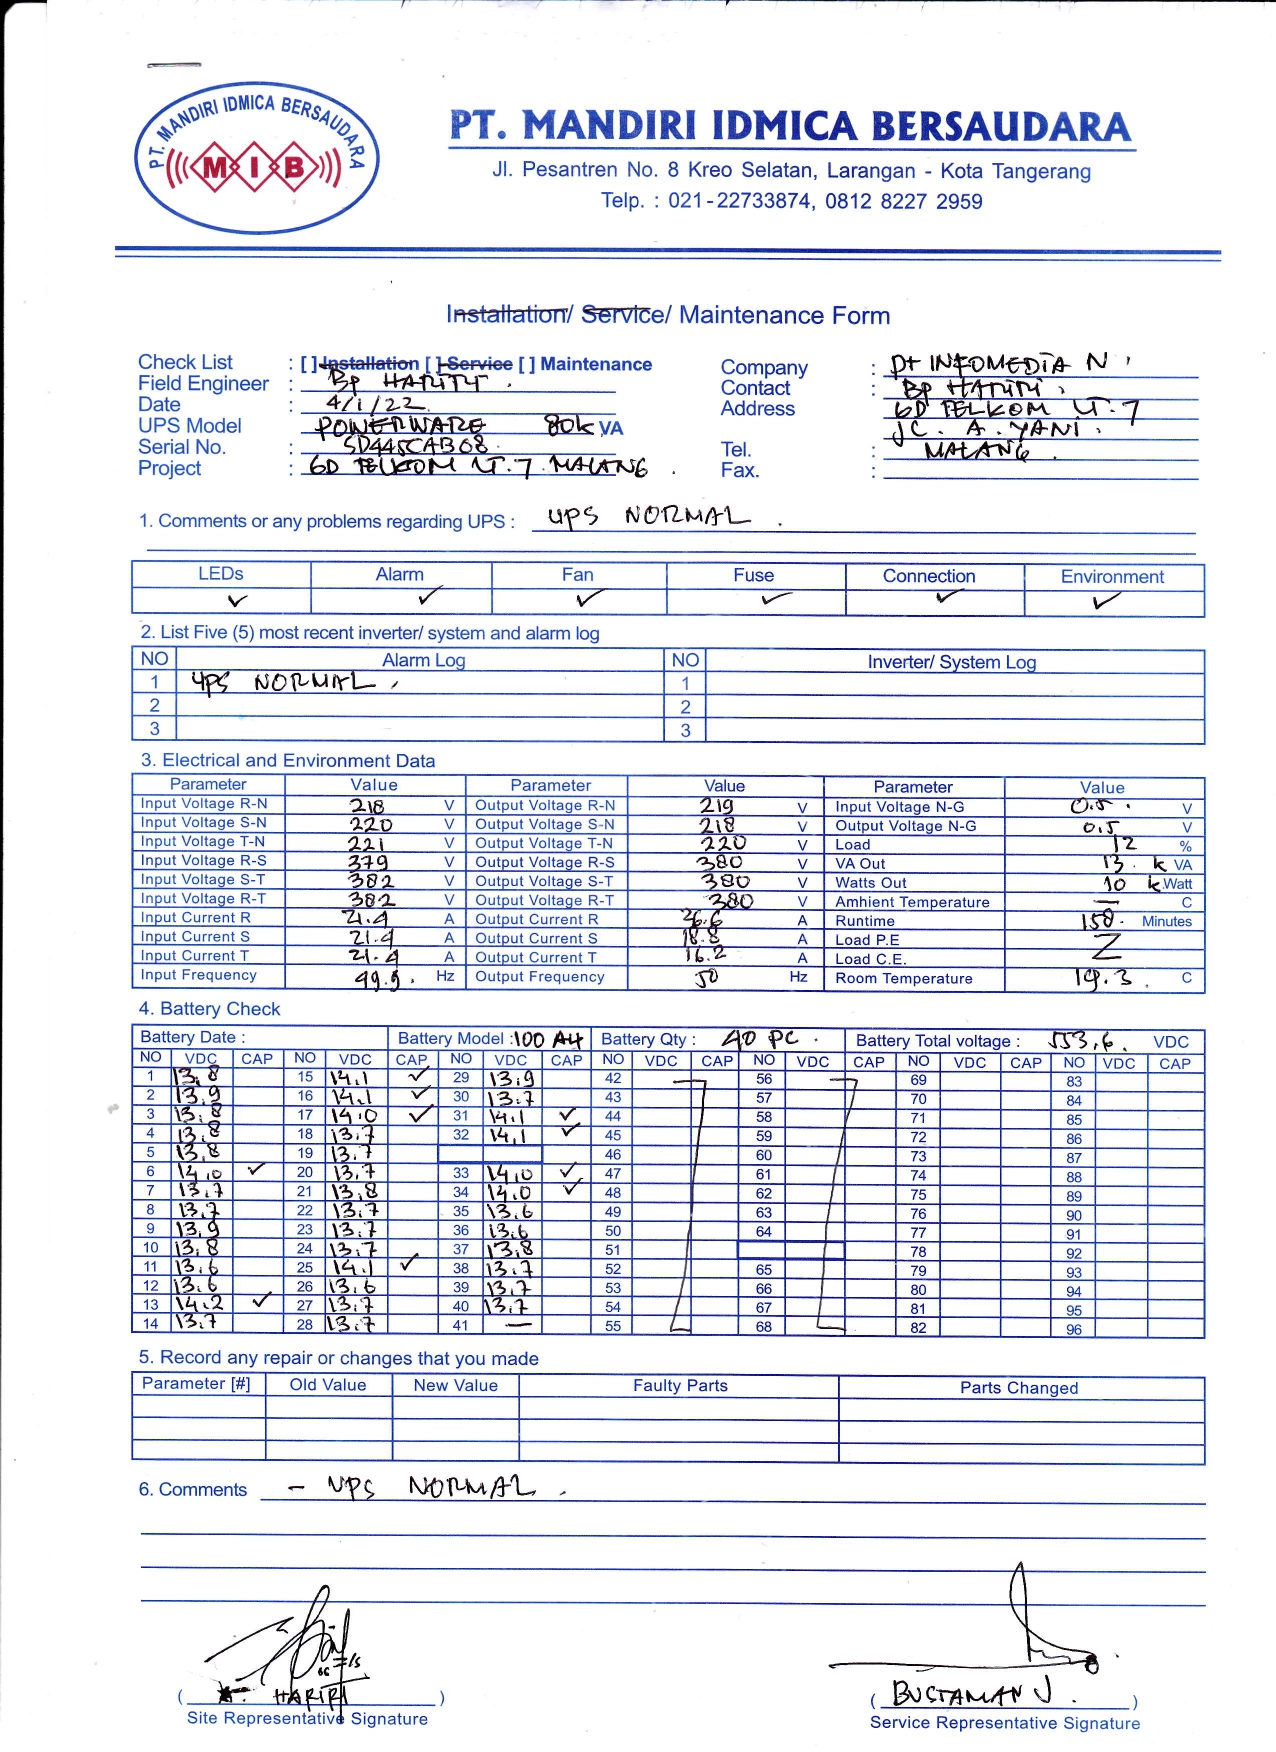 PT. MANDIRI IDMICA BERSAUDARA
MIB
PT. MANDIRI IDMICA BERSAUDARA
Jl. Pesantren No. 8 Kreo Selatan, Larangan - Kota Tangerang
Telp. : 021-22733874, 0812 8227 2959
Installation/ Service/ Maintenance Form
Check List : [ ] Installation [ ] Service [ ] Maintenance
Field Engineer : BP HARIRI.
Date : 4/1/22
UPS Model POWERWARE 80k VA
Serial No. : SD445CAB08
Project : GD TELKOM LT.7 MALANG.
Company : PT INFOMEDIA N.
Contact : BP HARIRI.
Address GD TELKOM LT.7
JL. A. YANI.
Tel. : MALANG.
Fax. :
1. Comments or any problems regarding UPS : UPS NORMAL.
LEDs Alarm Fan Fuse Connection Environment
✓ ✓ ✓ ✓ ✓ ✓
2. List Five (5) most recent inverter/ system and alarm log
NO Alarm Log NO Inverter/ System Log
1 UPS NORMAL. 1
2 2
3 3
3. Electrical and Environment Data
Parameter Value Parameter Value Parameter Value
Input Voltage R-N 218 V Output Voltage R-N 219 V Input Voltage N-G 0.5. V
Input Voltage S-N 220 V Output Voltage S-N 218 V Output Voltage N-G 0.5 V
Input Voltage T-N 221 V Output Voltage T-N 220 V Load 12 %
Input Voltage R-S 379 V Output Voltage R-S 380 V VA Out 13. k VA
Input Voltage S-T 382 V Output Voltage S-T 380 V Watts Out 10 k Watt
Input Voltage R-T 382 V Output Voltage R-T 380 V Amhient Temperature — C
Input Current R 21.4 A Output Current R 26.6 A Runtime 158. Minutes
Input Current S 21.4 A Output Current S 18.8 A Load P.E
Input Current T 21.4 A Output Current T 16.2 A Load C.E.
Input Frequency 49.9. Hz Output Frequency 50 Hz Room Temperature 19.3. C
4. Battery Check
Battery Date : Battery Model : 100 AH Battery Qty : 40 PC. Battery Total voltage : 553,6. VDC
NO VDC CAP NO VDC CAP NO VDC CAP NO VDC CAP NO VDC CAP NO VDC CAP NO VDC CAP
1 13,8 15 14.1 ✓ 29 13.9 42 56 69 83
2 13.9 16 14.1 ✓ 30 13.7 43 57 70 84
3 13.8 17 14.0 ✓ 31 14.1 ✓ 44 58 71 85
4 13.8 18 13.7 32 14,1 ✓ 45 59 72 86
5 13.8 19 13.7 46 60 73 87
6 14.0 ✓ 20 13.7 33 14.0 ✓ 47 61 74 88
7 13.7 21 13,8 34 14.0 ✓ 48 62 75 89
8 13.7 22 13.7 35 13.6 49 63 76 90
9 13.9 23 13.7 36 13.6 50 64 77 91
10 13.8 24 13.7 37 13,8 51 78 92
11 13.6 25 14.1 ✓ 38 13.7 52 65 79 93
12 13.6 26 13.6 39 13.7 53 66 80 94
13 14.2 ✓ 27 13.7 40 13.7 54 67 81 95
14 13.7 28 13.7 41 — 55 68 82 96
5. Record any repair or changes that you made
Parameter [#] Old Value New Value Faulty Parts Parts Changed
6. Comments – UPS NORMAL.
( HARIRI )
Site Representative Signature
( BUSTAMAN J. )
Service Representative Signature